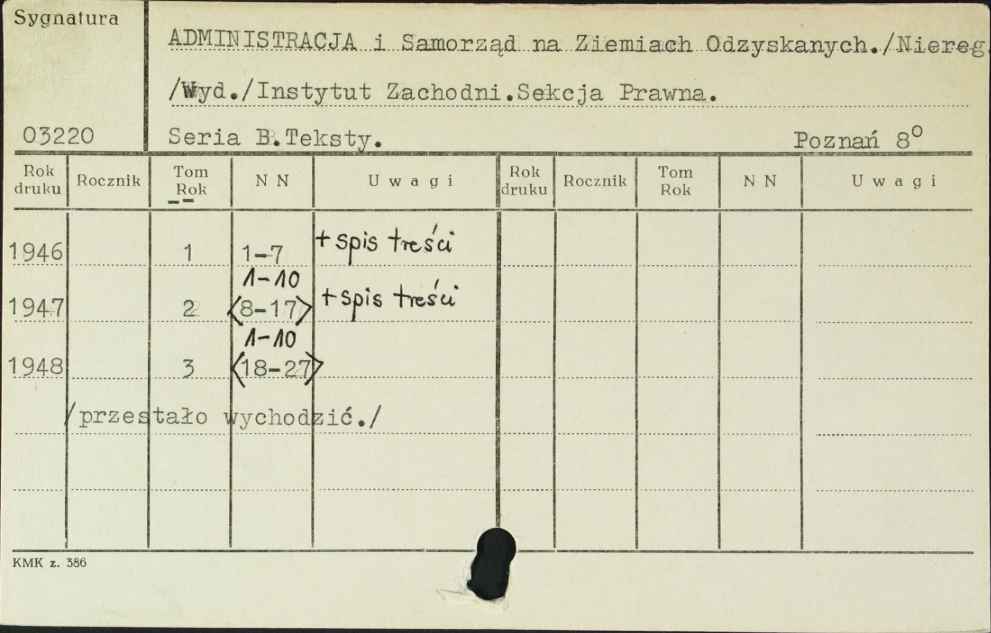 Sygnatura
ADMINISTRACJA i Samorząd na Ziemiach Odzyskanych./Niereg.
/Wyd./Instytut Zachodni.Sekcja Prawna.
03220 Seria B.Teksty. Poznań 8°
Rok druku Rocznik Tom Rok N N Uwagi Rok druku Rocznik Tom Rok N N Uwagi
1946 1 1-7 + spis treści
1-10
1947 2 <8-17> + spis treści
1-10
1948 3 <18-27>
/przestało wychodzić./
KMK z. 386